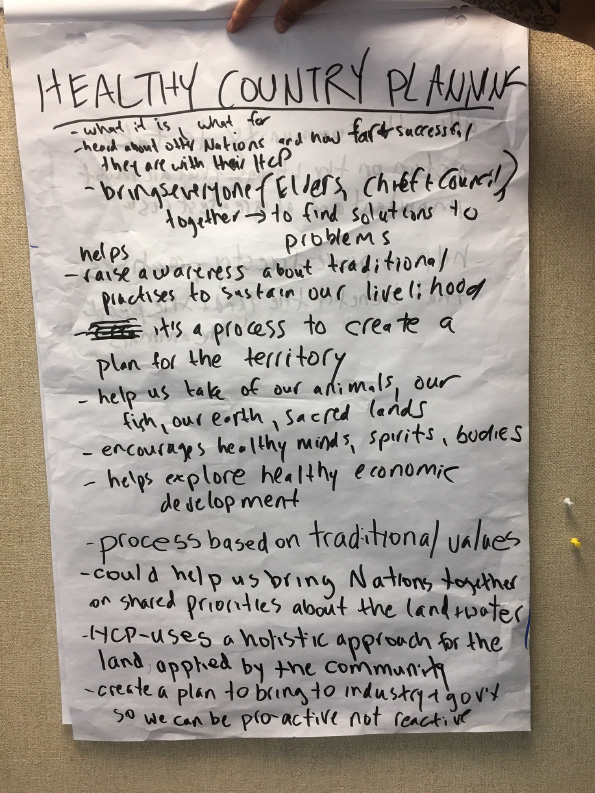 HEALTHY COUNTRY PLANNING
- what it is, what for
- head about othr Nations and how far + successful
they are with their HCP
- brings everyone (Elders, Chief + Council)
together → to find solutions to
problems
helps
- raise awareness about traditional
practises to sustain our livelihood
- it's a process to create a
plan for the territory
- help us take of our animals, our
fish, our earth, sacred lands
- encourages healthy minds, spirits, bodies
- helps explore healthy economic
development
- process based on traditional values
- could help us bring Nations together
on shared priorities about the land + water
- HCP - uses a holistic approach for the
land, applied by the community
- create a plan to bring to industry + gov't
so we can be pro-active not reactive